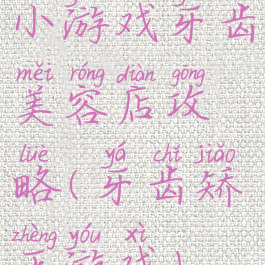 小游戏牙齿
měi róng diàn gōng
美容店攻
lüè yá chǐ jiǎo
略(牙齿矫
zhèng yóu xì
正游戏)